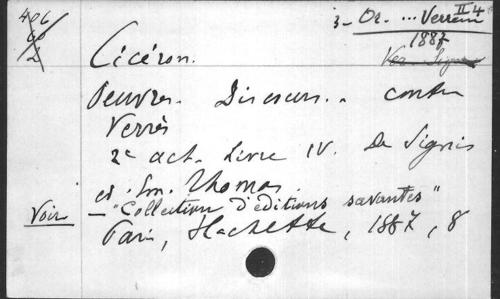 406
60
2
3 - Or. ... Verrem II 4
1887
Ver. Signis
Cicéron.
Oeuvres. Discours. contre
Verrès
2e act. Livre IV. De Signis
ed. Em. Thomas.
Voir — "Collection d'éditions savantes"
Paris, Hachette, 1887, 8